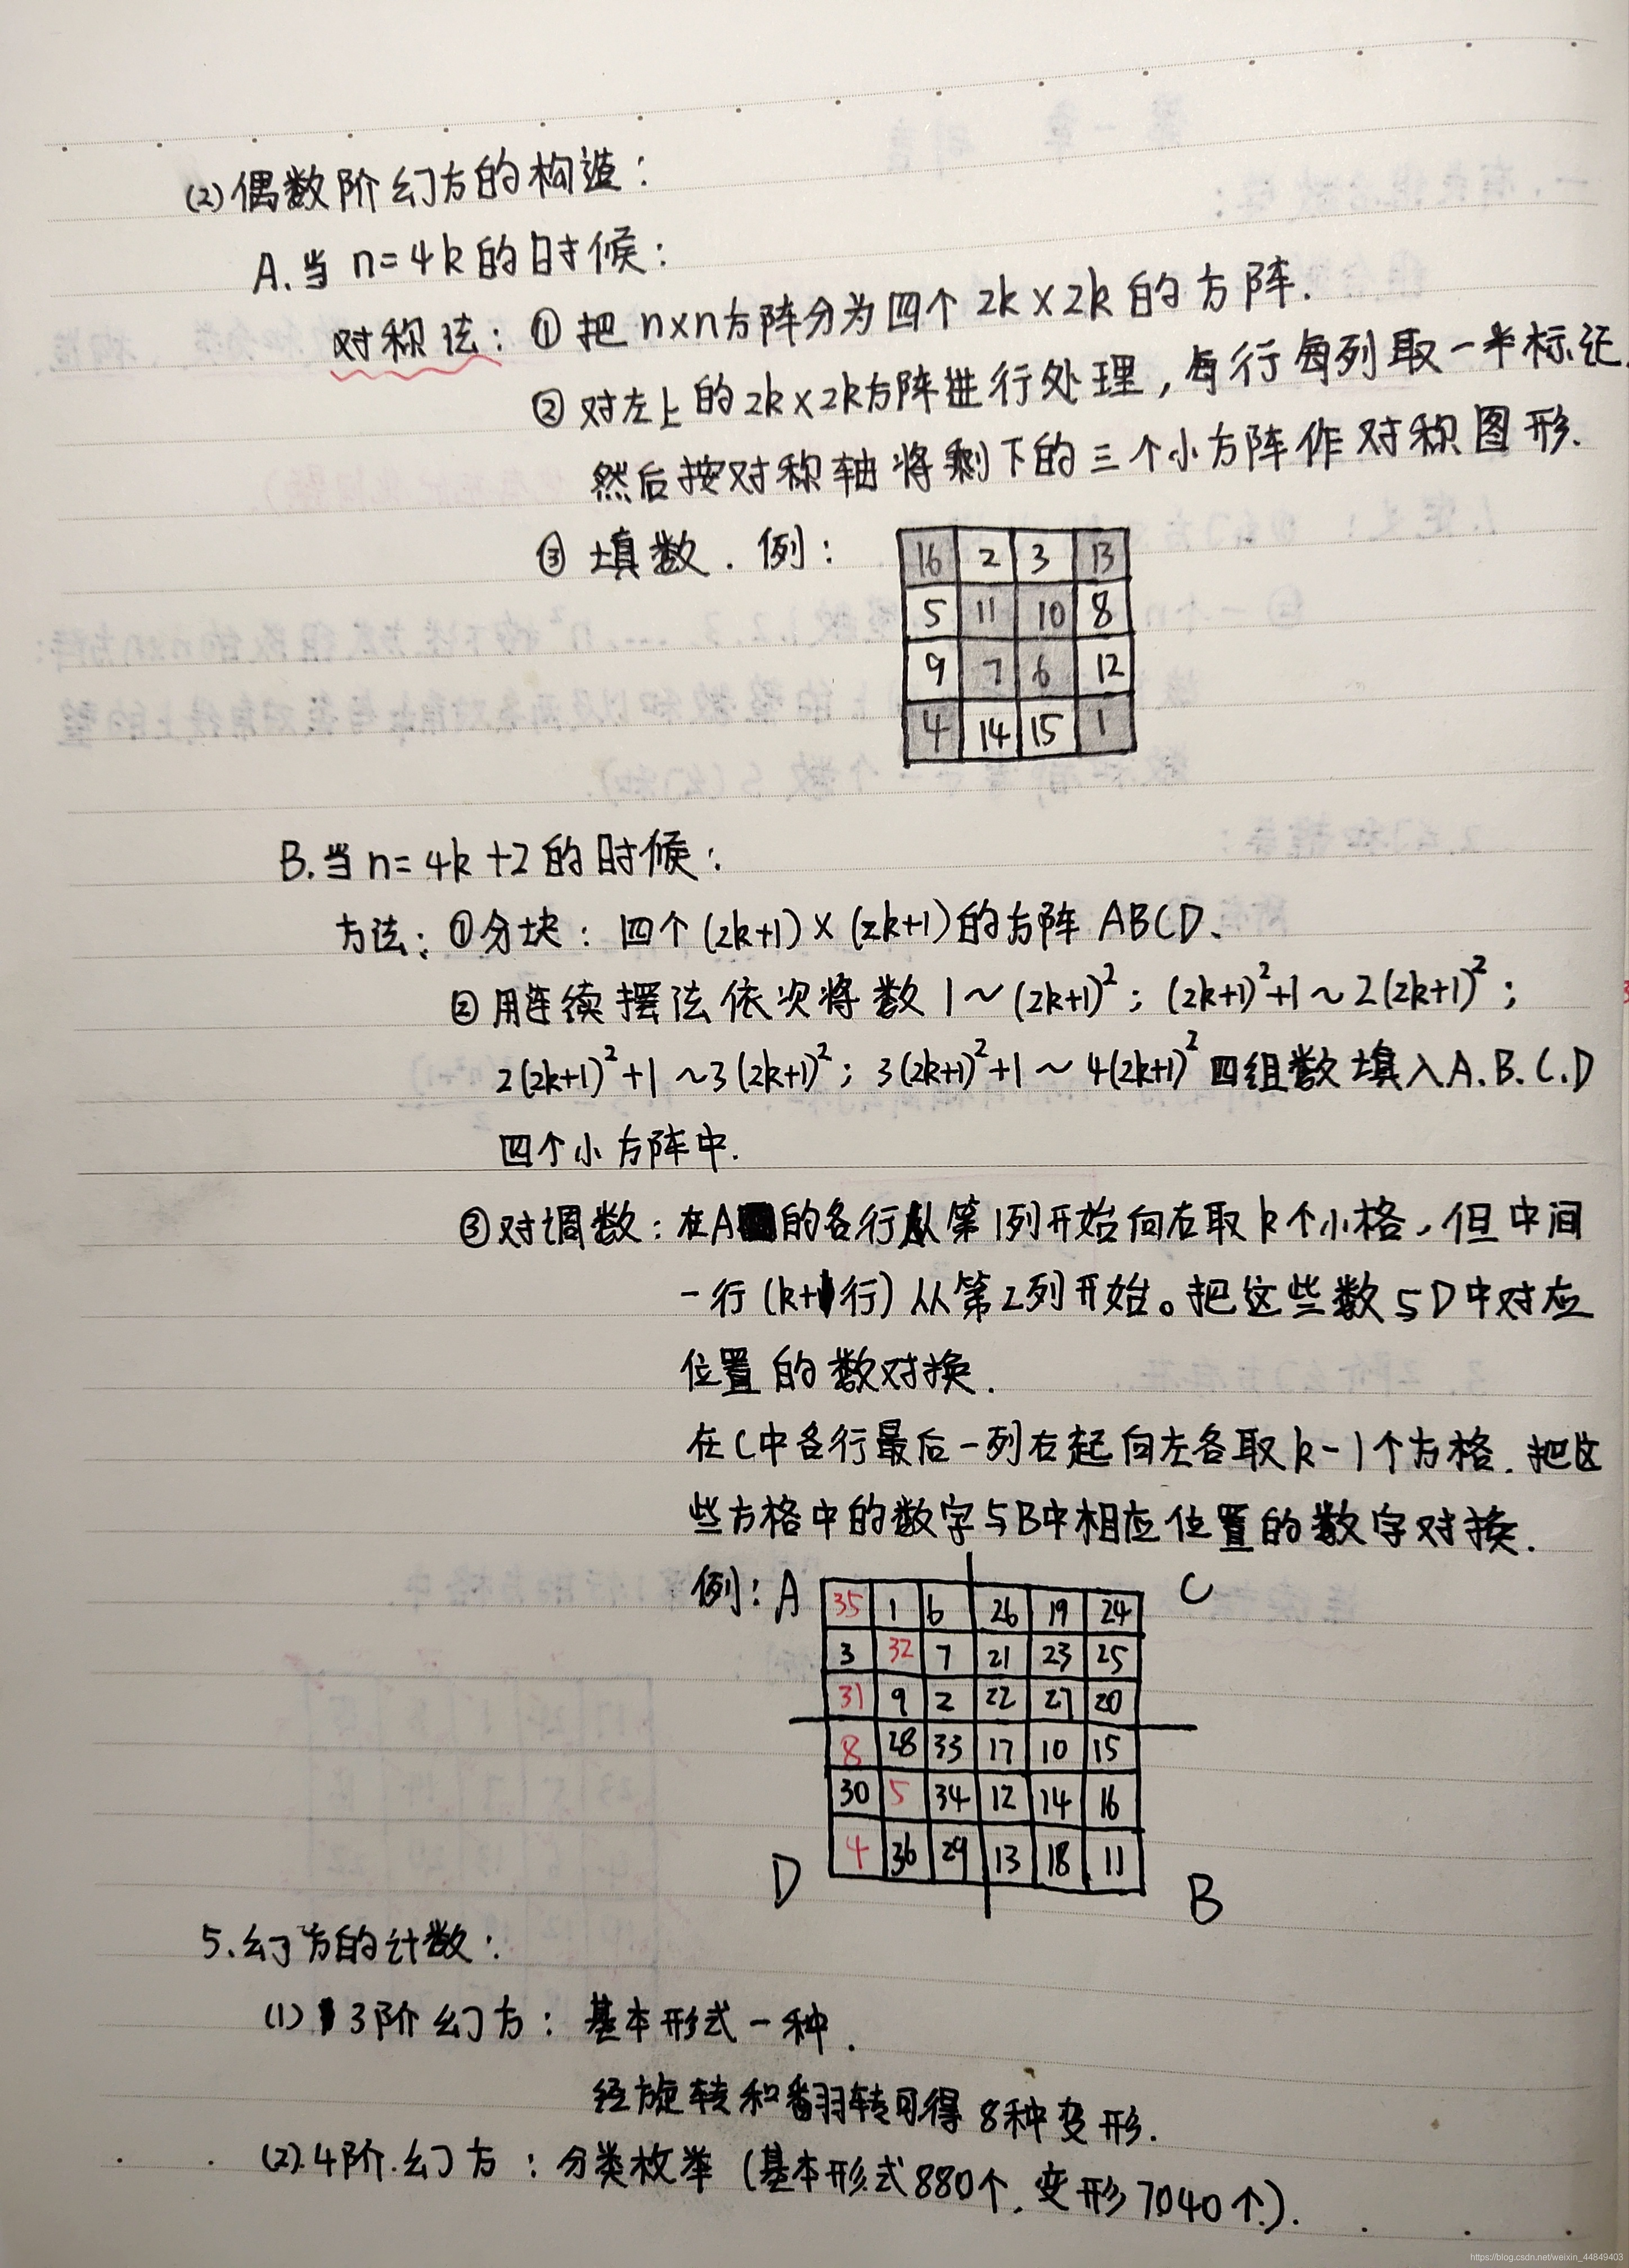 (2)偶数阶幻方的构造：
A.当 n=4k的时候：
对称法：① 把 n×n方阵分为四个 2k×2k 的方阵.
② 对左上的2k×2k方阵进行处理，每行每列取一半标记.
然后按对称轴将剩下的三个小方阵作对称图形.
③ 填数．例：
16 2 3 13
5 11 10 8
9 7 6 12
4 14 15 1
B.当 n=4k+2的时候：
方法：①分块：四个(2k+1)×(2k+1)的方阵 ABCD、
②用连续摆法依次将数 1～(2k+1)²；(2k+1)²+1～2(2k+1)²；
2(2k+1)²+1～3(2k+1)²；3(2k+1)²+1～4(2k+1)² 四组数填入A.B.C.D
四个小方阵中.
③对调数：在A的各行从第1列开始向右取k个小格，但中间
一行(k+1行)从第2列开始。把这些数与D中对应
位置的数对换.
在C中各行最后一列右起向左各取k-1个方格．把这
些方格中的数字与B中相应位置的数字对换.
例：A C
35 1 6 26 19 24
3 32 7 21 23 25
31 9 2 22 27 20
8 28 33 17 10 15
30 5 34 12 14 16
4 36 29 13 18 11
D B
5.幻方的计数：
(1) 3阶幻方：基本形式一种.
经旋转和翻转可得 8种变形.
(2).4阶.幻方：分类枚举（基本形式880个，变形7040个）.
https://blog.csdn.net/weixin_44849403